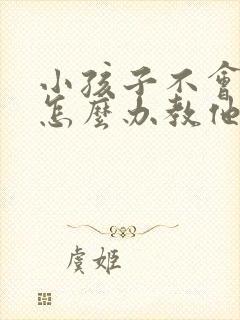 小孩子不會
怎麼办教他
虞姬